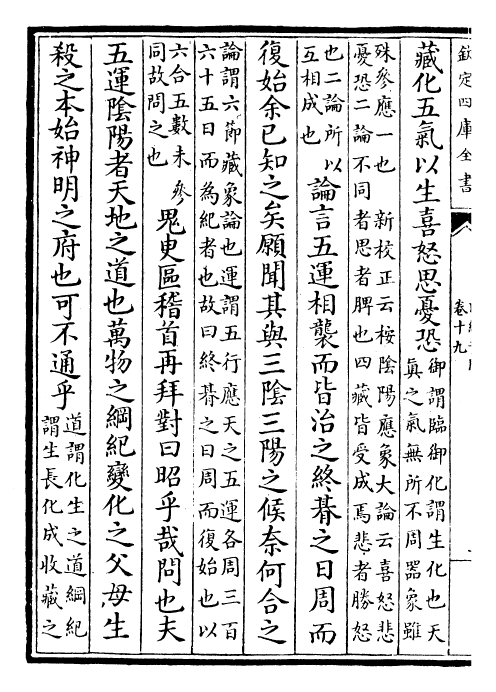 欽定四庫全書
卷十九
藏化五氣以生喜怒思憂恐
御謂臨御化謂生化也天
真之氣無所不周器象雖
殊參應一也 新校正云按陰陽應象大論云喜怒悲
憂恐二論不同者思者脾也四藏皆受成焉悲者勝怒
也二論所以
互相成也
論言五運相襲而皆治之終朞之日周而
復始余已知之矣願聞其與三陰三陽之候奈何合之
論謂六節藏象論也運謂五行應天之五運各周三百
六十五日而為紀者也故曰終朞之日周而復始也以
六合五數未參
同故問之也
鬼臾區稽首再拜對曰昭乎哉問也夫
五運陰陽者天地之道也萬物之綱紀變化之父母生
殺之本始神明之府也可不通乎
道謂化生之道綱紀
謂生長化成收藏之